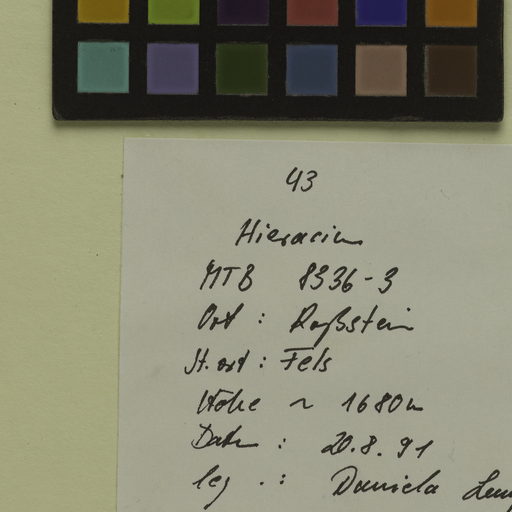 43
Hieracium
MTB 8336-3
Ort : Roßstein
St.ort : Fels
Höhe ~ 1680m
Datum : 20.8.91
leg .: Daniela